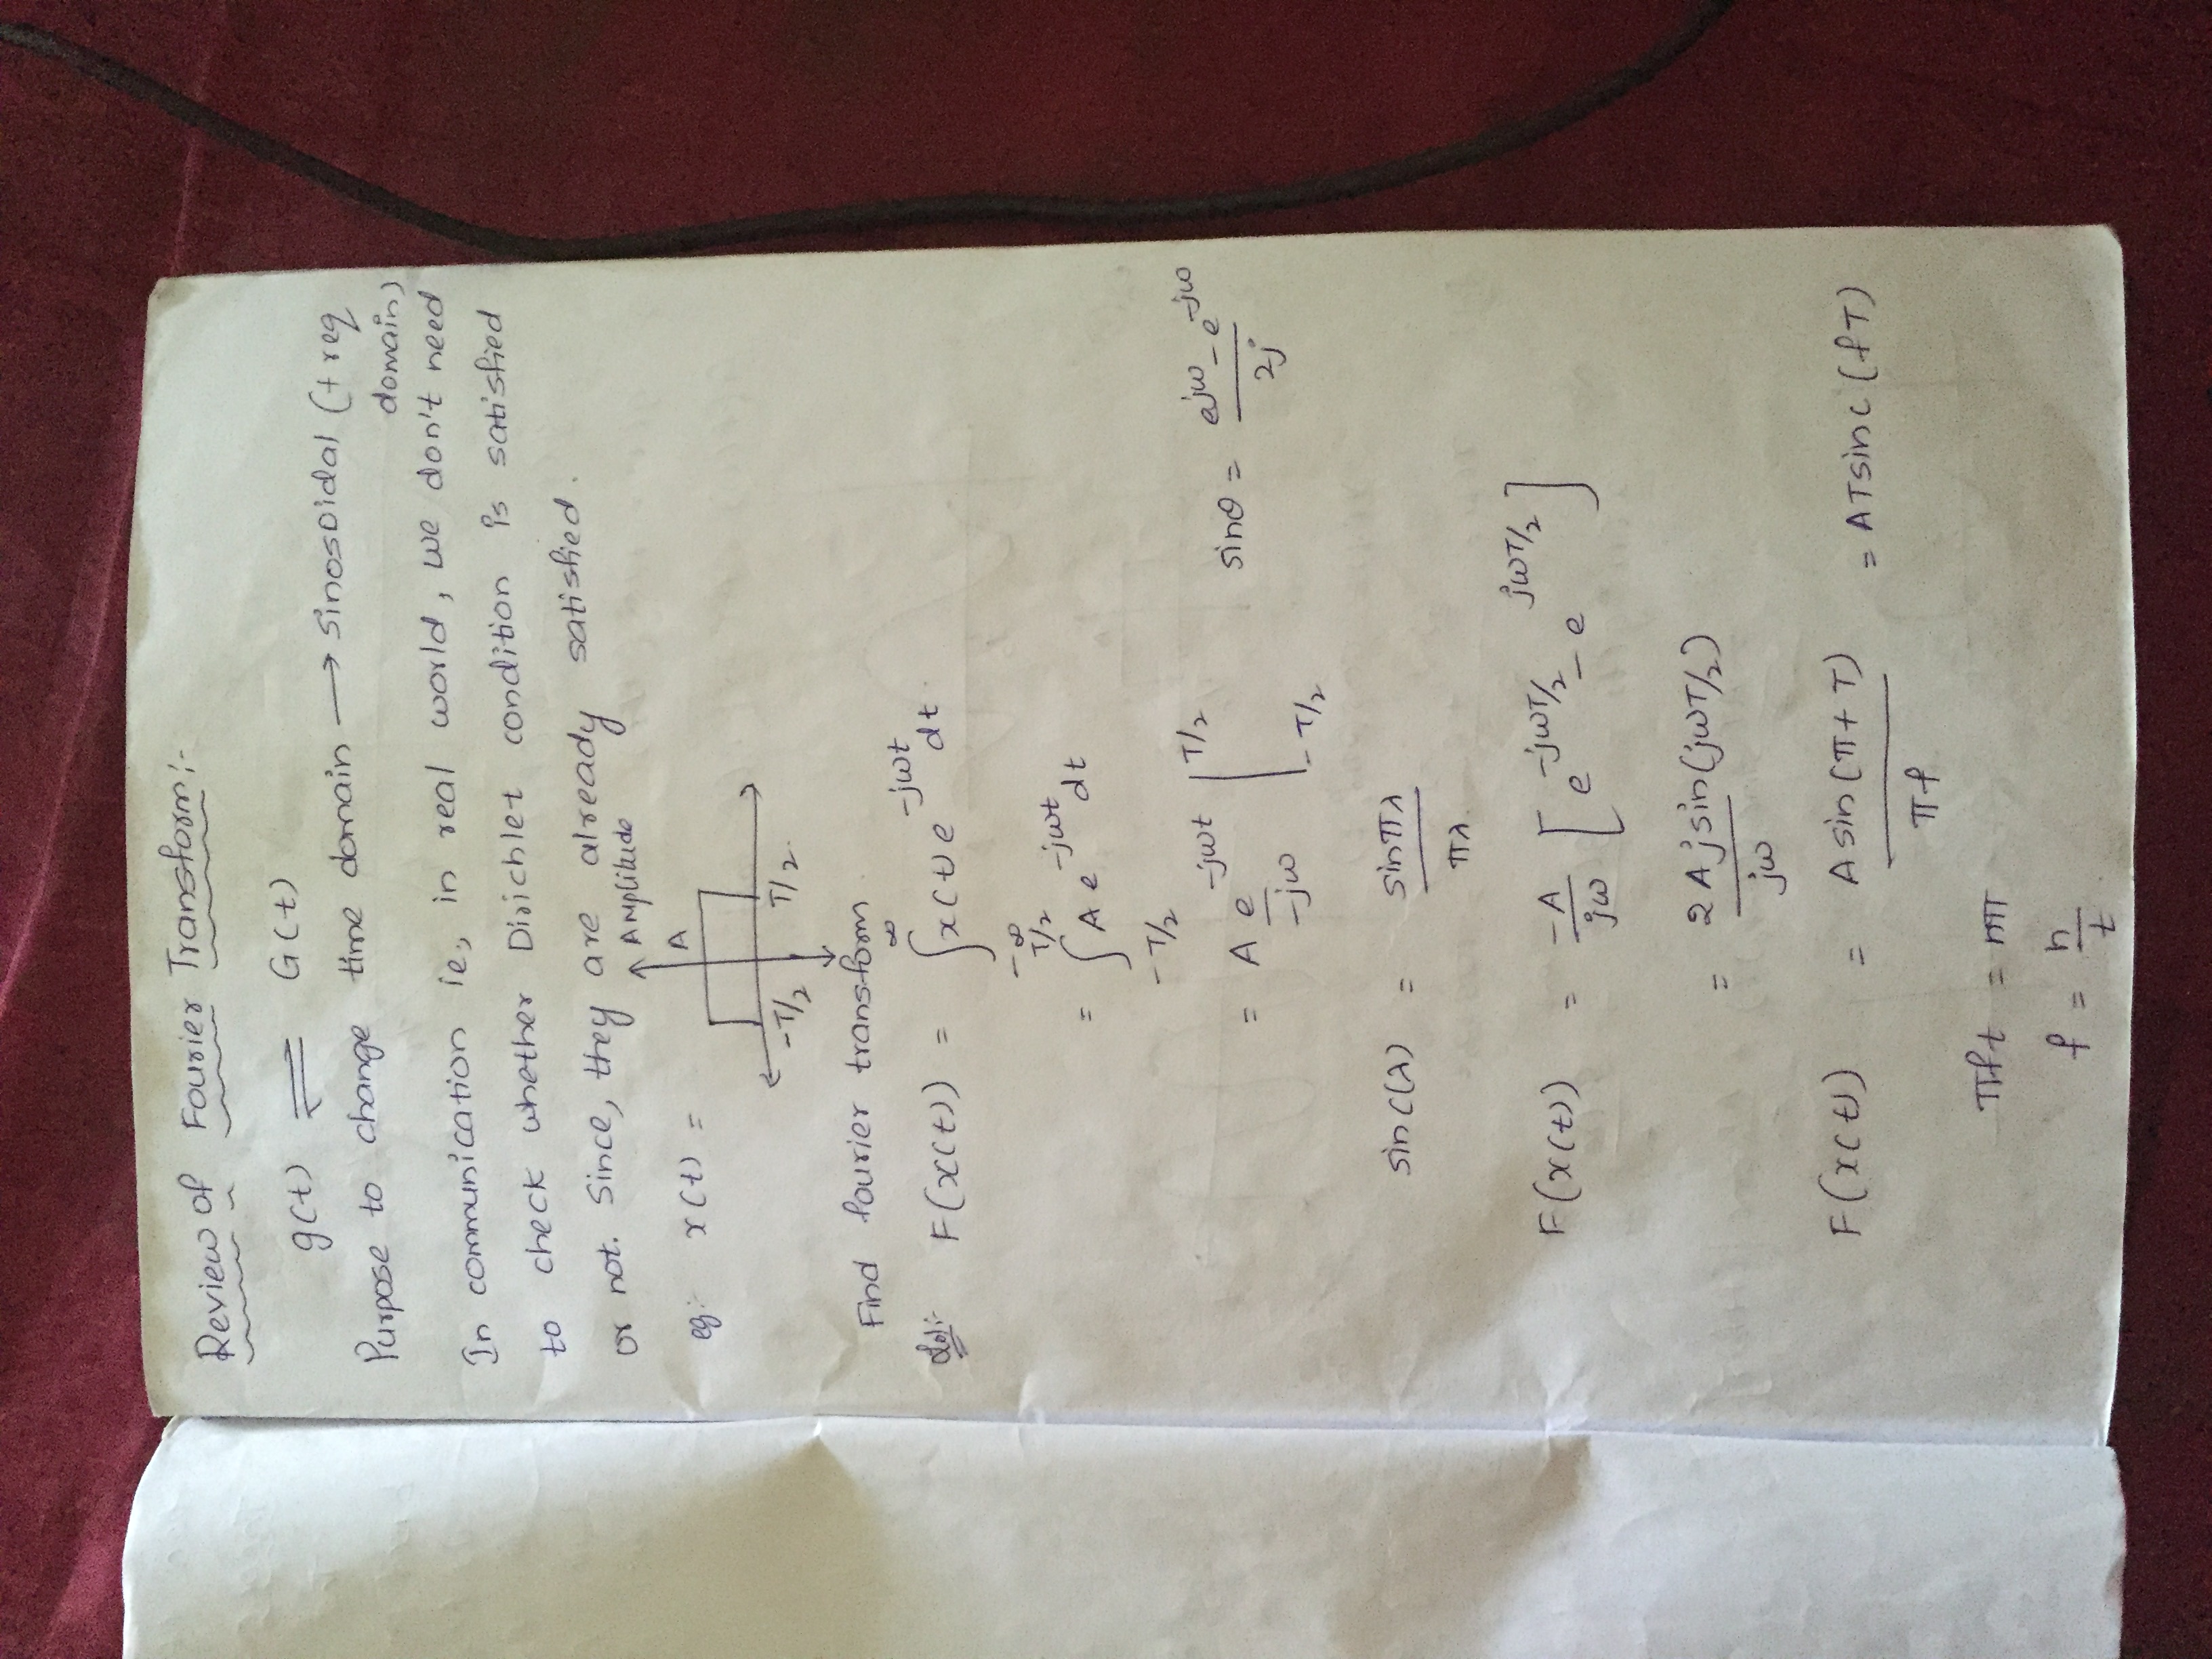 Review of Fourier Transform:-
g(t) ⇌ G(t)
Purpose to change time domain → sinosoidal (+req
domain)
In communication ie., in real world, we don't need
to check whether Dirichlet condition is satisfied
or not. Since, they are already satisfied.
Amplitude
A
eg:- x(t) =
-T/2 T/2.
Find fourier transform
Sol:- F(x(t)) = ∫_{-∞}^{∞} x(t) e^{-jωt} dt
= ∫_{-T/2}^{T/2} A e^{-jωt} dt
= A e^{-jωt}/-jω |_{-T/2}^{T/2} sinθ = (e^{jω} - e^{-jω})/2j
sinc(λ) = sinπλ/πλ.
F(x(t)) = -A/jω [e^{-jωT/2} - e^{jωT/2}]
= 2Aj sin(jωT/2)/jω
F(x(t)) = A sin(π+T)/πf = AT sinc(fT)
πft = nπ
f = n/t